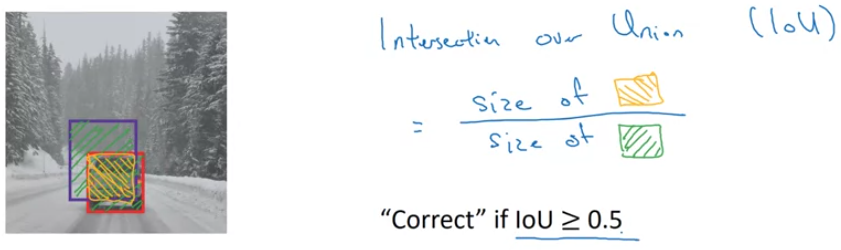 Intersection over Union (IoU)
= size of
size of
"Correct" if IoU ≥ 0.5